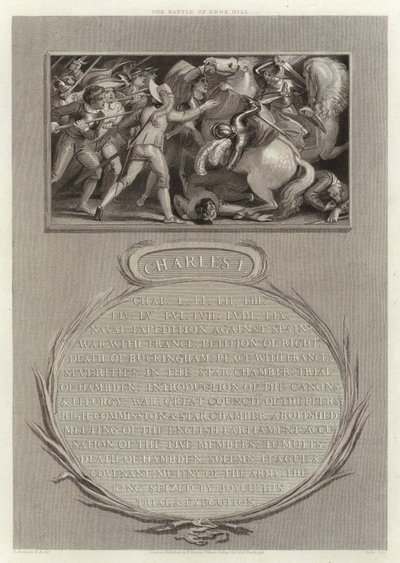 THE BATTLE OF EDGE HILL
CHARLES I.
CHAP. L. LI. LII. LIII.
LIV. LV. LVI. LVII. LVIII. LIX.
NAVAL EXPEDITION AGAINST SPAIN,
WAR WITH FRANCE, PETITION OF RIGHT,
DEATH OF BUCKINGHAM, PEACE WITH FRANCE,
SEVERITIES IN THE STAR CHAMBER, TRIAL
OF HAMBDEN, INTRODUCTION OF THE CANONS
& LITURGY, WAR, GREAT COUNCIL OF THE PEERS,
HIGH COMMISSION & STAR CHAMBER ABOLISHED,
MEETING OF THE ENGLISH PARLIAMENT, ACCU-
SATION OF THE FIVE MEMBERS, TUMULTS,
DEATH OF HAMBDEN, SOLEMN LEAGUE &
COVENANT, MUTINY OF THE ARMY, THE
KING SEIZED BY JOYCE, HIS
TRIAL & EXECUTION.